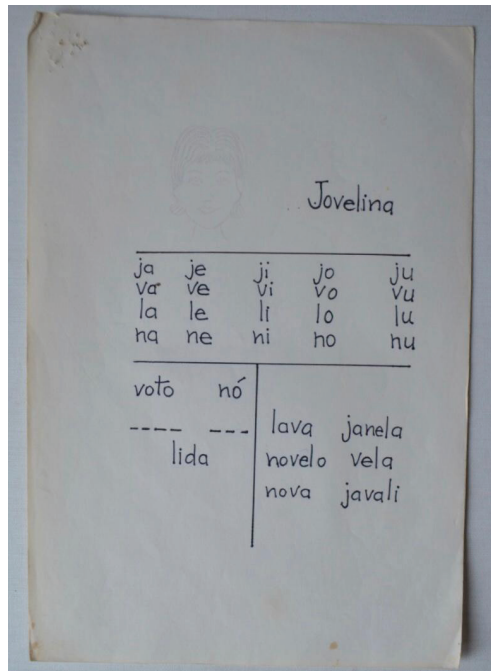 Jovelina
ja je ji jo ju
va ve vi vo vu
la le li lo lu
na ne ni no nu
voto nó
---- ---
lida
lava janela
novelo vela
nova javali